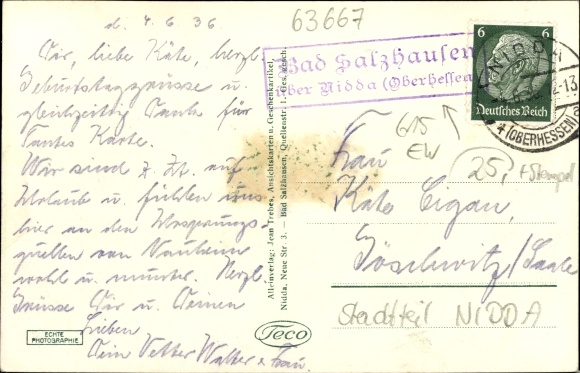 d. 4.6.36
Dir, liebe Käte, herzl.
Geburtstagsgrüsse u.
gleichzeitig Dank für
Karte.
Wir sind z. Zt. auf
Urlaub u. fühlen uns
hier an den Ursprungs-
quellen von Nauheim
wohl u. munter. Herzl.
Grüsse Dir u. Deinen
Lieben
Dein Vetter Walter u. Frau.
ECHTE
PHOTOGRAPHIE
Alleinverlag: Jean Trebes, Ansichtskarten u. Geschenkartikel,
Nidda, Neue Str. 3. — Bad Salzhausen, Quellenstr. 1. Ges. gesch.
Teco
63667
Bad Salzhausen
über Nidda (Oberhessen)
6 6
Deutsches Reich
NIDDA
(OBERHESSEN)
615
EW
25,- + Stempel
Frau
Käte
Göschwitz/Saale
Stadtteil NIDDA